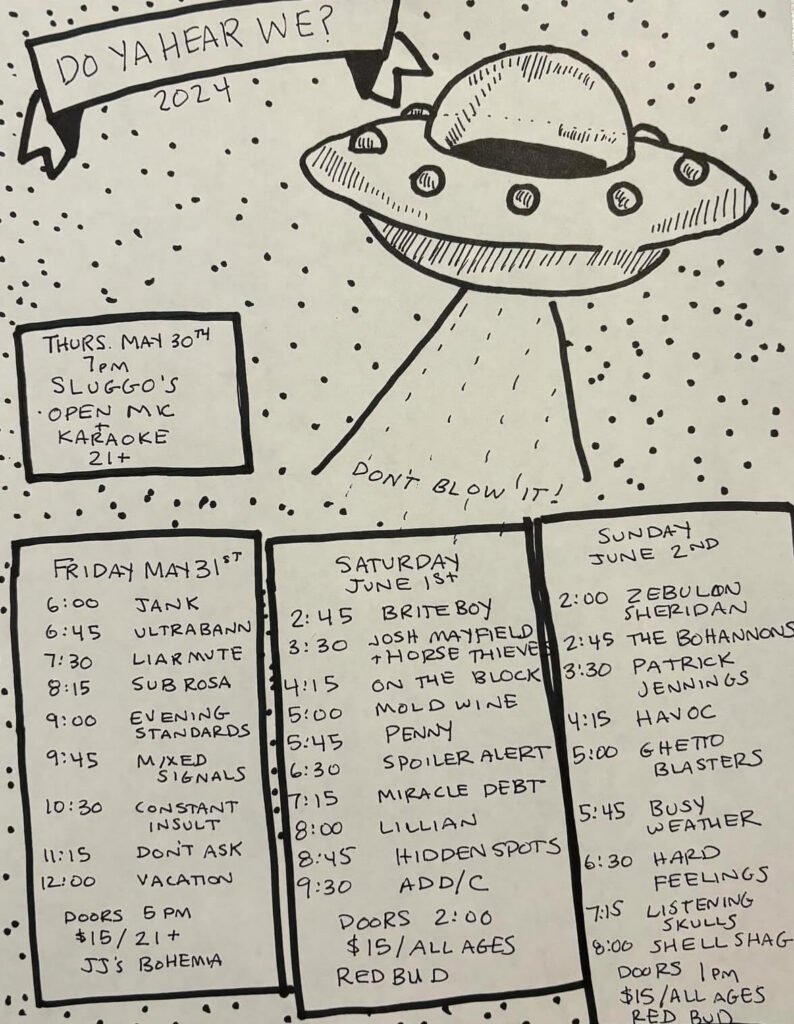 DO YA HEAR WE?
2024
THURS. MAY 30TH
7PM
SLUGGO'S
·OPEN MIC
+
KARAOKE
21+
DON'T BLOW IT!
FRIDAY MAY 31ST
6:00 JANK
6:45 ULTRABANN
7:30 LIARMUTE
8:15 SUB ROSA
9:00 EVENING
STANDARDS
9:45 MIXED
SIGNALS
10:30 CONSTANT
INSULT
11:15 DON'T ASK
12:00 VACATION
DOORS 5 PM
$15/21+
JJ'S BOHEMIA
SATURDAY
JUNE 1ST
2:45 BRITEBOY
3:30 JOSH MAYFIELD
+ HORSE THIEVES
4:15 ON THE BLOCK
5:00 MOLD WINE
5:45 PENNY
6:30 SPOILER ALERT
7:15 MIRACLE DEBT
8:00 LILLIAN
8:45 HIDDEN SPOTS
9:30 ADD/C
DOORS 2:00
$15/ALL AGES
RED BUD
SUNDAY
JUNE 2ND
2:00 ZEBULON
SHERIDAN
2:45 THE BOHANNONS
3:30 PATRICK
JENNINGS
4:15 HAVOC
5:00 GHETTO
BLASTERS
5:45 BUSY
WEATHER
6:30 HARD
FEELINGS
7:15 LISTENING
SKULLS
8:00 SHELLSHAG
DOORS 1PM
$15/ALL AGES
RED BUD